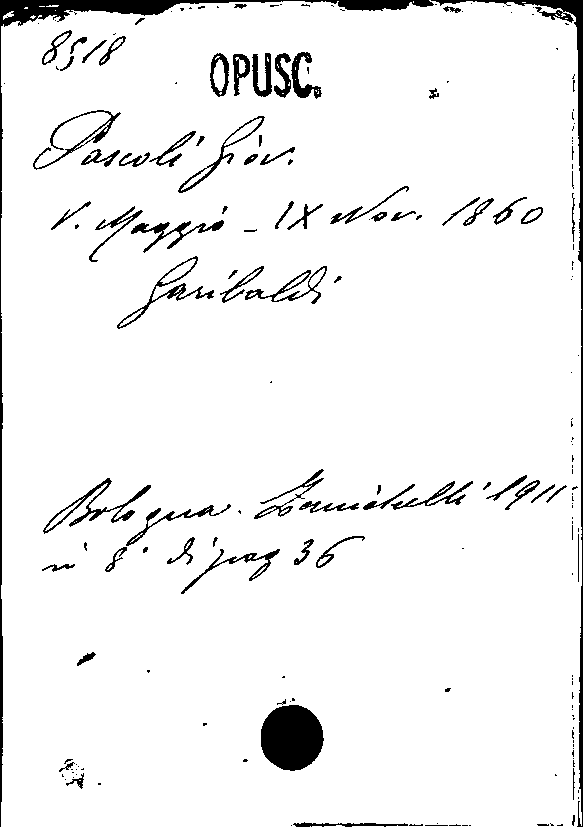 8518
OPUSC.
Pascoli Giov.
V. Maggio - IX Nov. 1860
Garibaldi
Bologna. Zanichelli 1911
in 8° di pag 36